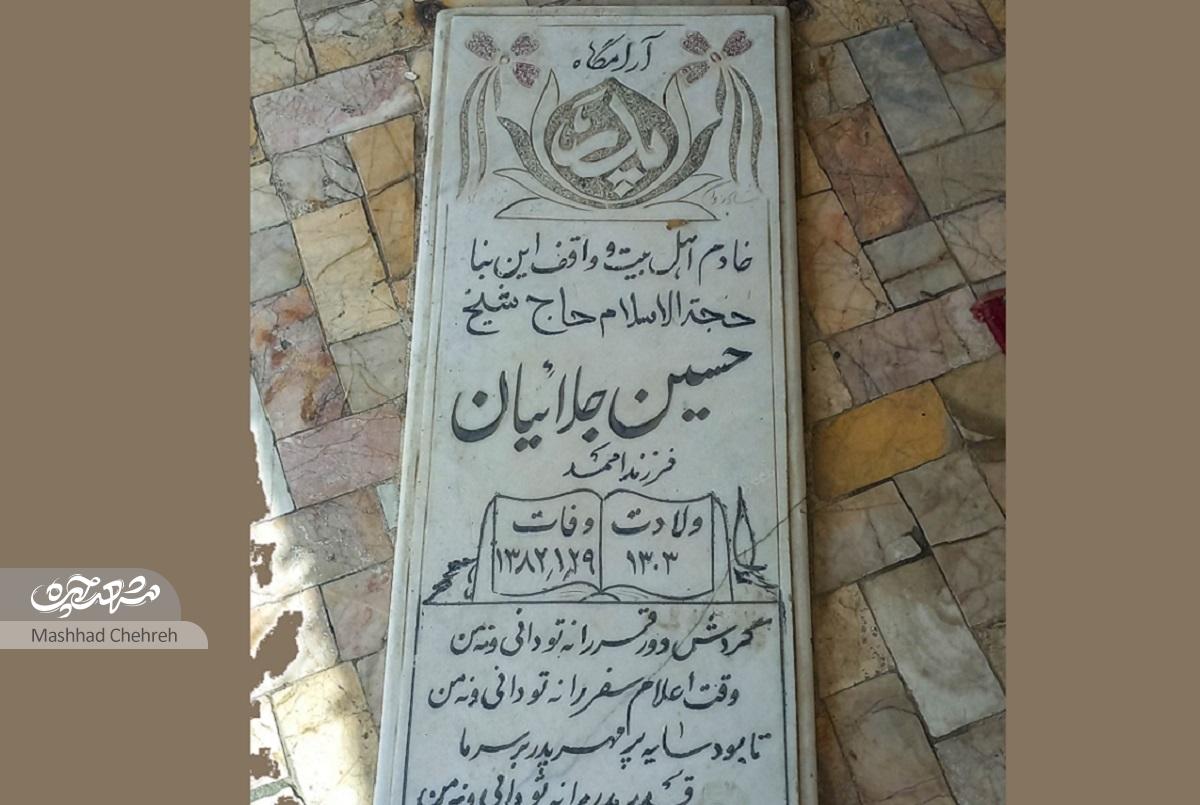 آرامگاه
پدر
خادم اهل بیت و واقف این بنا
حجة الاسلام حاج شیخ
حسین جلائیان
فرزند احمد
ولادت وفات
۱۳۰۳ ۱۳۸۲/۱/۲۹
گردش دور قمر را نه تو دانی و نه من
وقت اعلام سفر را نه تو دانی و نه من
تا بود سایه پر مهر پدر بر سر ما
قدر پدر را نه تو دانی و نه من
مشهد چهره
Mashhad Chehreh